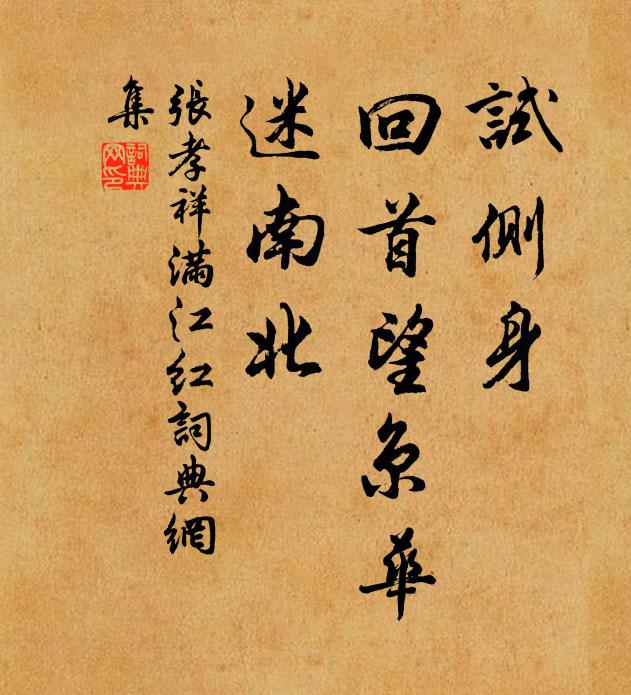 試側身
回首望京華
迷南北
張孝祥滿江紅詞典網
集
詞典
网印